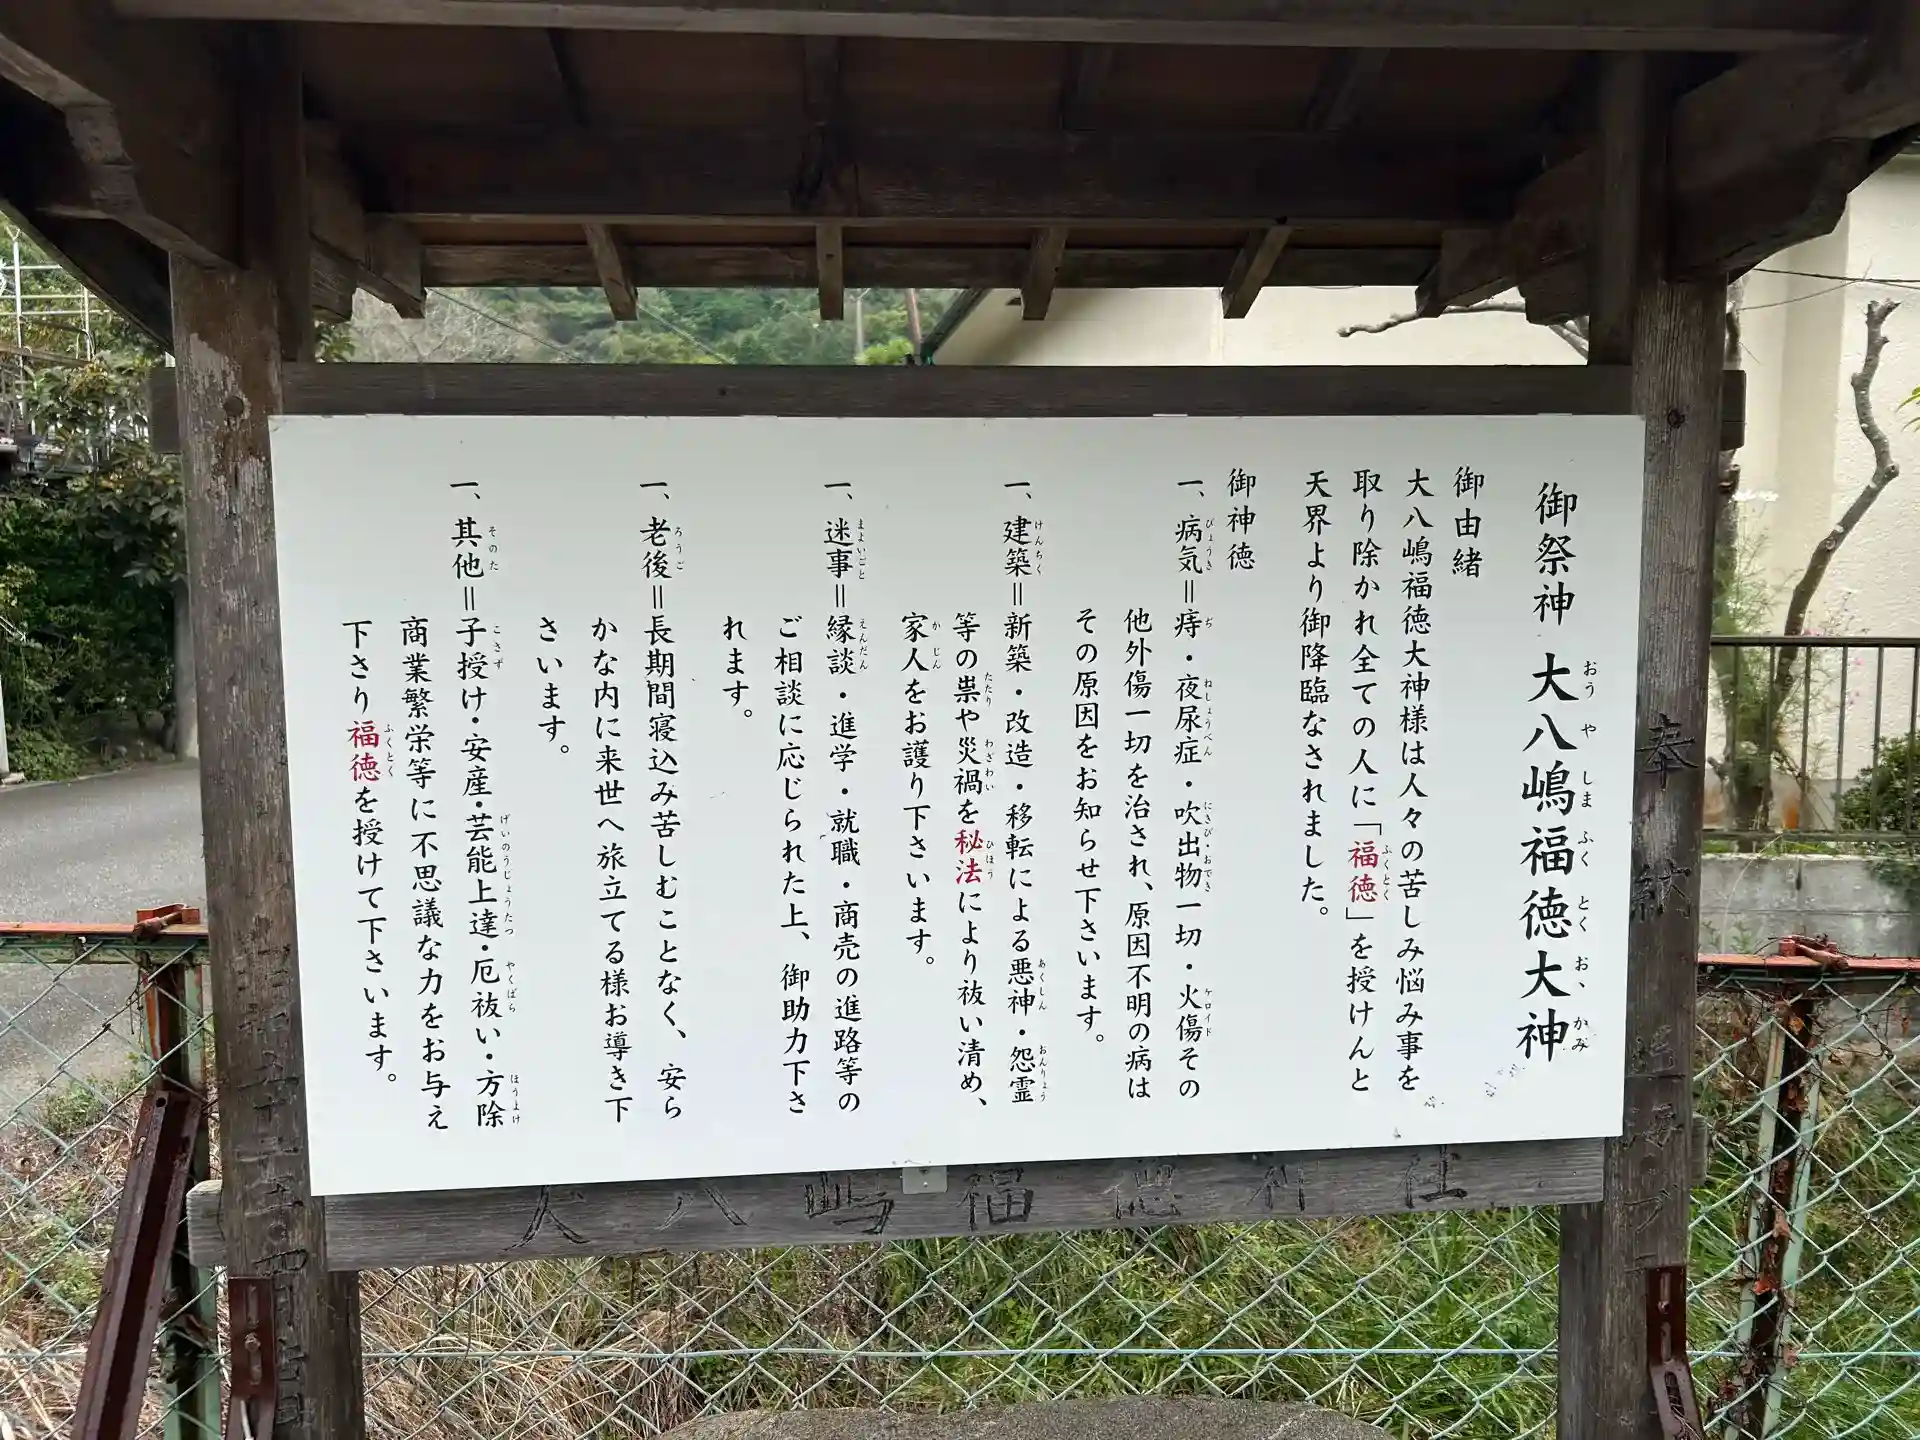 御祭神 大八嶋福徳大神
御由緒
大八嶋福徳大神様は人々の苦しみ悩み事を
取り除かれ全ての人に「福徳」を授けんと
天界より御降臨なされました。
御神徳
一、病気＝痔・夜尿症・吹出物一切・火傷その
他外傷一切を治され、原因不明の病は
その原因をお知らせ下さいます。
一、建築＝新築・改造・移転による悪神・怨霊
等の祟や災禍を秘法により祓い清め、
家人をお護り下さいます。
一、迷事＝縁談・進学・就職・商売の進路等の
ご相談に応じられた上、御助力下さ
れます。
一、老後＝長期間寝込み苦しむことなく、安ら
かな内に来世へ旅立てる様お導き下
さいます。
一、其他＝子授け・安産・芸能上達・厄祓い・方除
商業繁栄等に不思議な力をお与え
下さり福徳を授けて下さいます。
奉納
大八嶋福徳神社